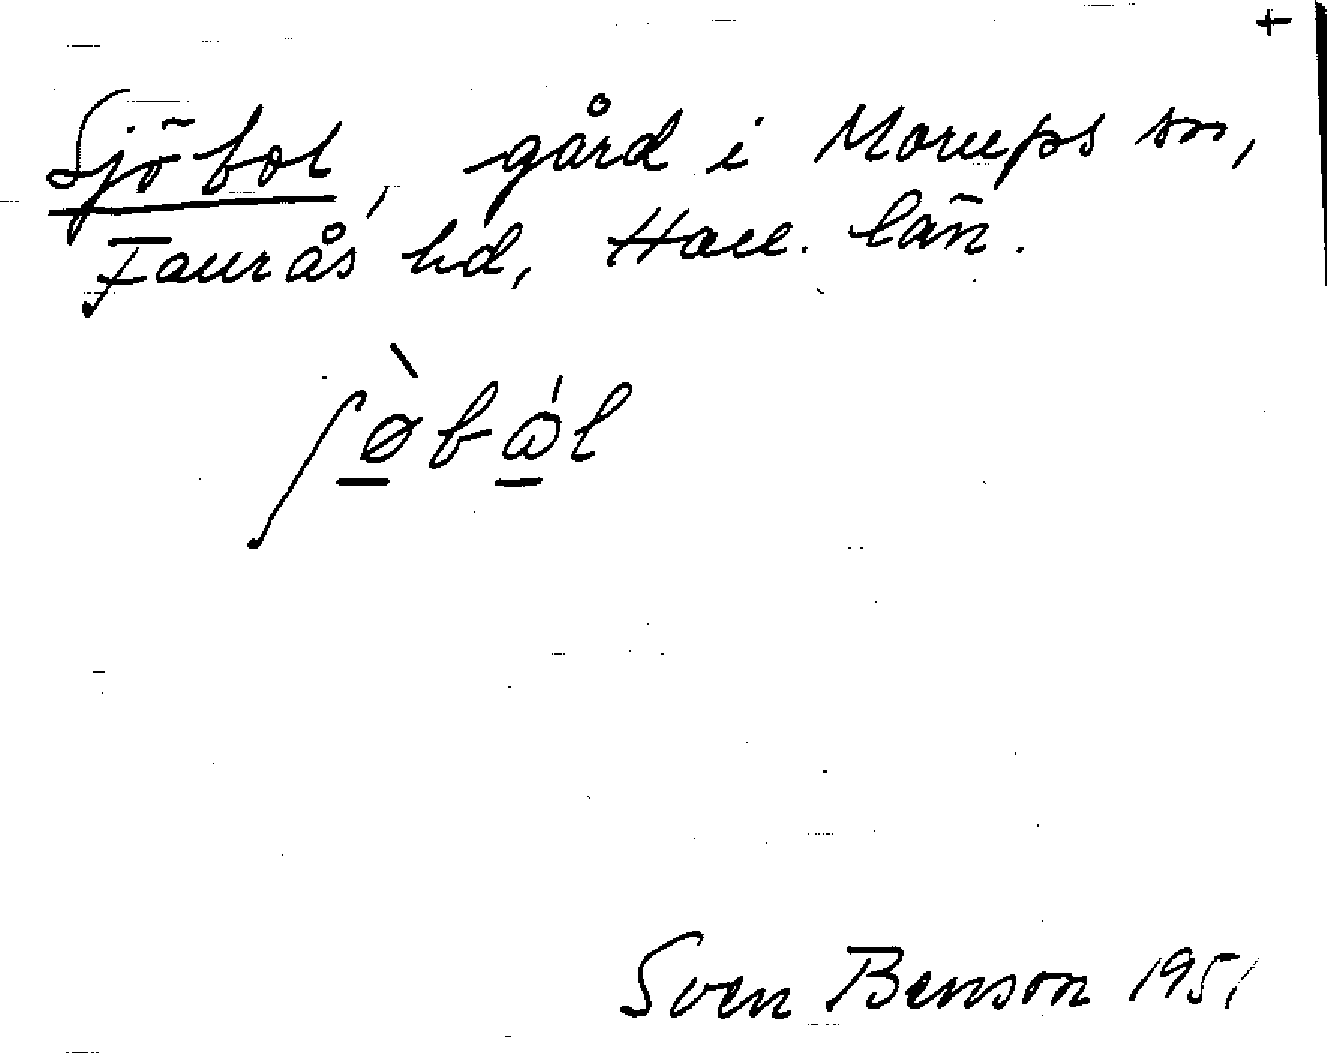 +
Sjöbol, gård i Morups sn,
Faurås hd, Hall. län.
ʃø̀bål
Sven Benson 1951